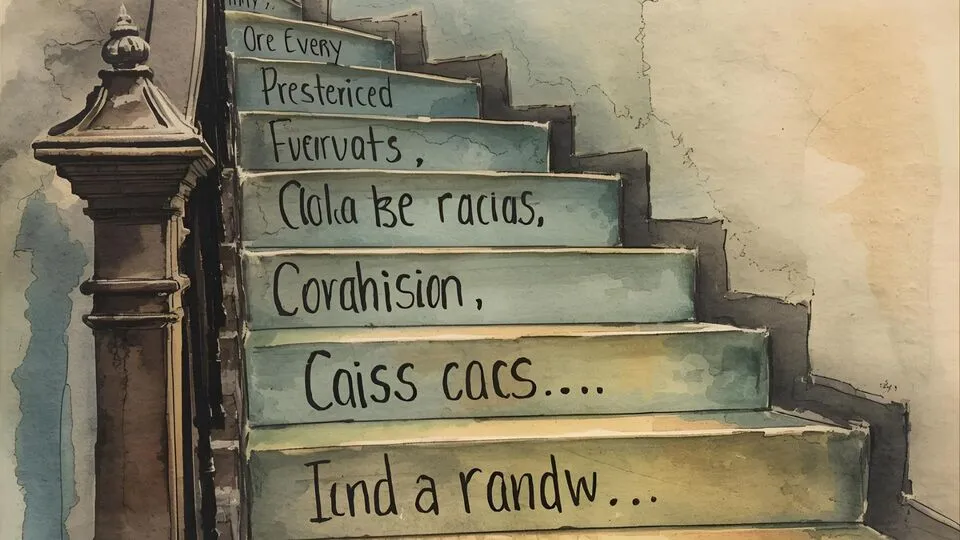 Ore Every
Prestericed
Fverruats,
Cloka Be racias,
Corahision,
Caiss cacs....
Iind a randw...